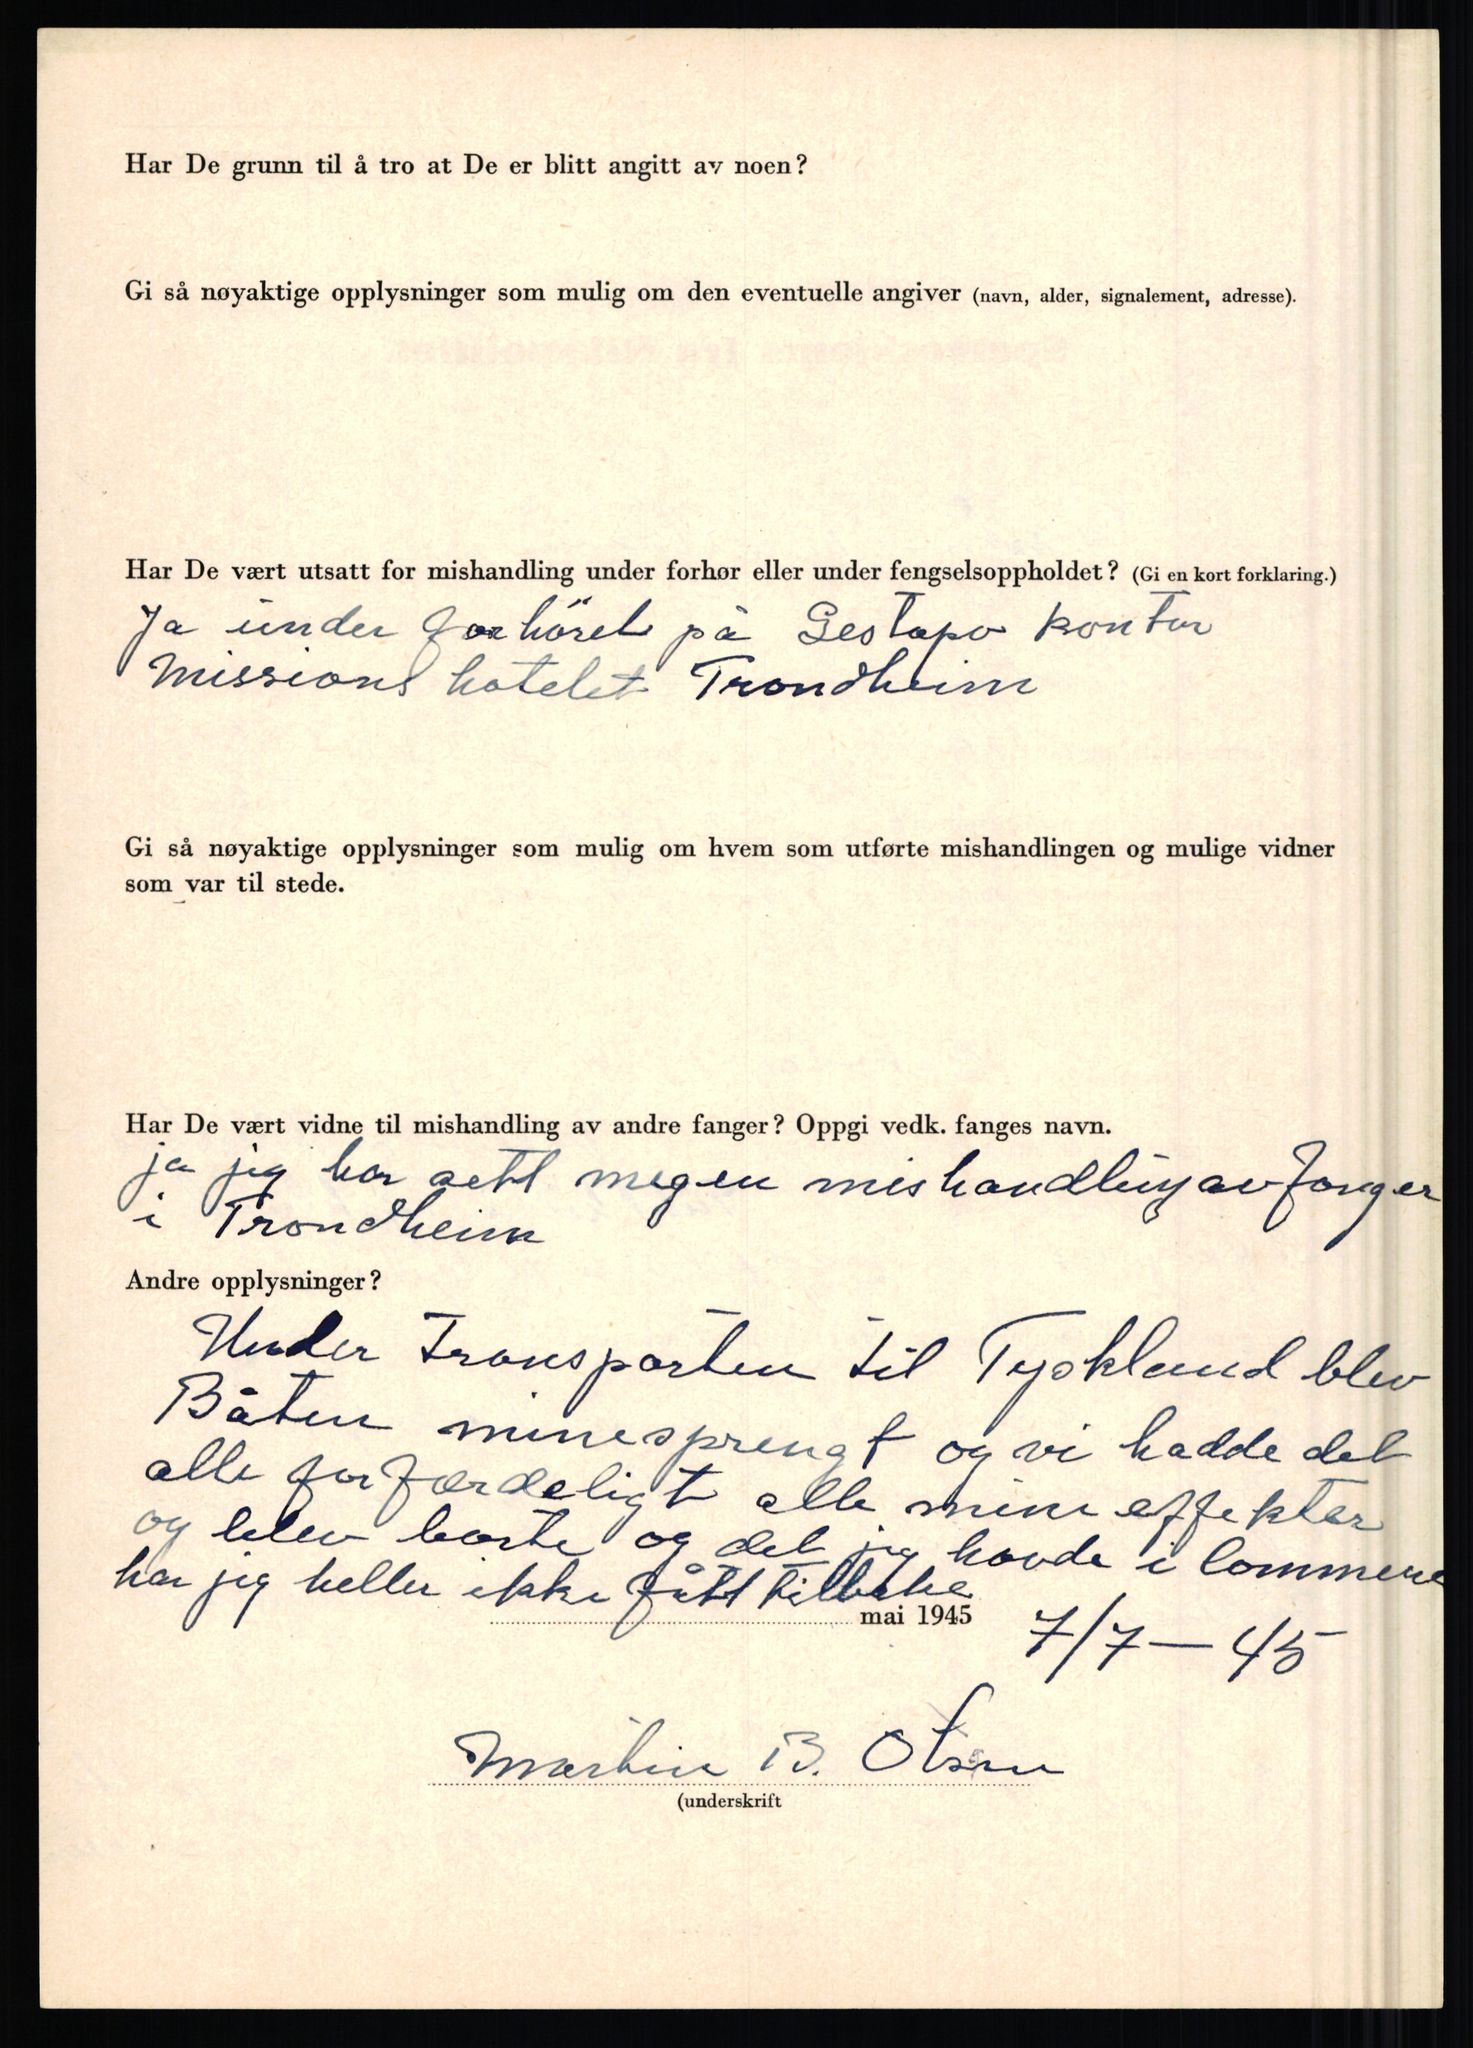 Har De grunn til å tro at De er blitt angitt av noen?
Gi så nøyaktige opplysninger som mulig om den eventuelle angiver (navn, alder, signalement, adresse).
Har De vært utsatt for mishandling under forhør eller under fengselsoppholdet? (Gi en kort forklaring.)
Ja under forhöret på Gestapo kontor
Missions hotelet Trondheim
Gi så nøyaktige opplysninger som mulig om hvem som utførte mishandlingen og mulige vidner
som var til stede.
Har De vært vidne til mishandling av andre fanger? Oppgi vedk. fanges navn.
ja jeg har sett megen mishandling av fanger
i Trondheim
Andre opplysninger?
Under Transporten til Tyskland blev
Båten minesprengt og vi hadde det
alle forfærdeligt alle mine effekter
og blev borte og det jeg havde i lommene
har jeg heller ikke fått tilbake
mai 1945 7/7-45
Martin B. Olsen
(underskrift